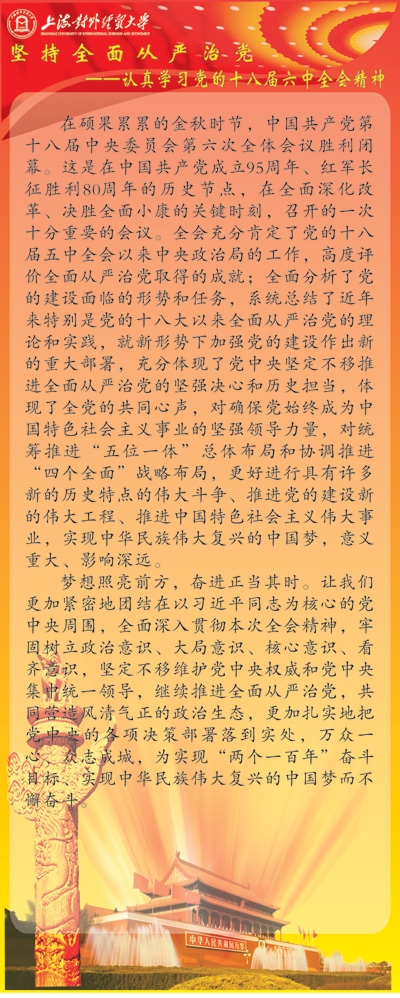 上海对外经贸大学
SHANGHAI UNIVERSITY OF INTERNATIONAL BUSINESS AND ECONOMICS
坚持全面从严治党
——认真学习党的十八届六中全会精神
在硕果累累的金秋时节，中国共产党第
十八届中央委员会第六次全体会议胜利闭
幕。这是在中国共产党成立95周年、红军长
征胜利80周年的历史节点，在全面深化改
革、决胜全面小康的关键时刻，召开的一次
十分重要的会议。全会充分肯定了党的十八
届五中全会以来中央政治局的工作，高度评
价全面从严治党取得的成就；全面分析了党
的建设面临的形势和任务，系统总结了近年
来特别是党的十八大以来全面从严治党的理
论和实践，就新形势下加强党的建设作出新
的重大部署，充分体现了党中央坚定不移推
进全面从严治党的坚强决心和历史担当，体
现了全党的共同心声，对确保党始终成为中
国特色社会主义事业的坚强领导力量，对统
筹推进“五位一体”总体布局和协调推进
“四个全面”战略布局，更好进行具有许多
新的历史特点的伟大斗争、推进党的建设新
的伟大工程、推进中国特色社会主义伟大事
业，实现中华民族伟大复兴的中国梦，意义
重大、影响深远。
梦想照亮前方，奋进正当其时。让我们
更加紧密地团结在以习近平同志为核心的党
中央周围，全面深入贯彻本次全会精神，牢
固树立政治意识、大局意识、核心意识、看
齐意识，坚定不移维护党中央权威和党中央
集中统一领导，继续推进全面从严治党，共
同营造风清气正的政治生态，更加扎实地把
党中央的各项决策部署落到实处，万众一
心、众志成城，为实现“两个一百年”奋斗
目标、实现中华民族伟大复兴的中国梦而不
懈奋斗。
中华人民共和国万岁